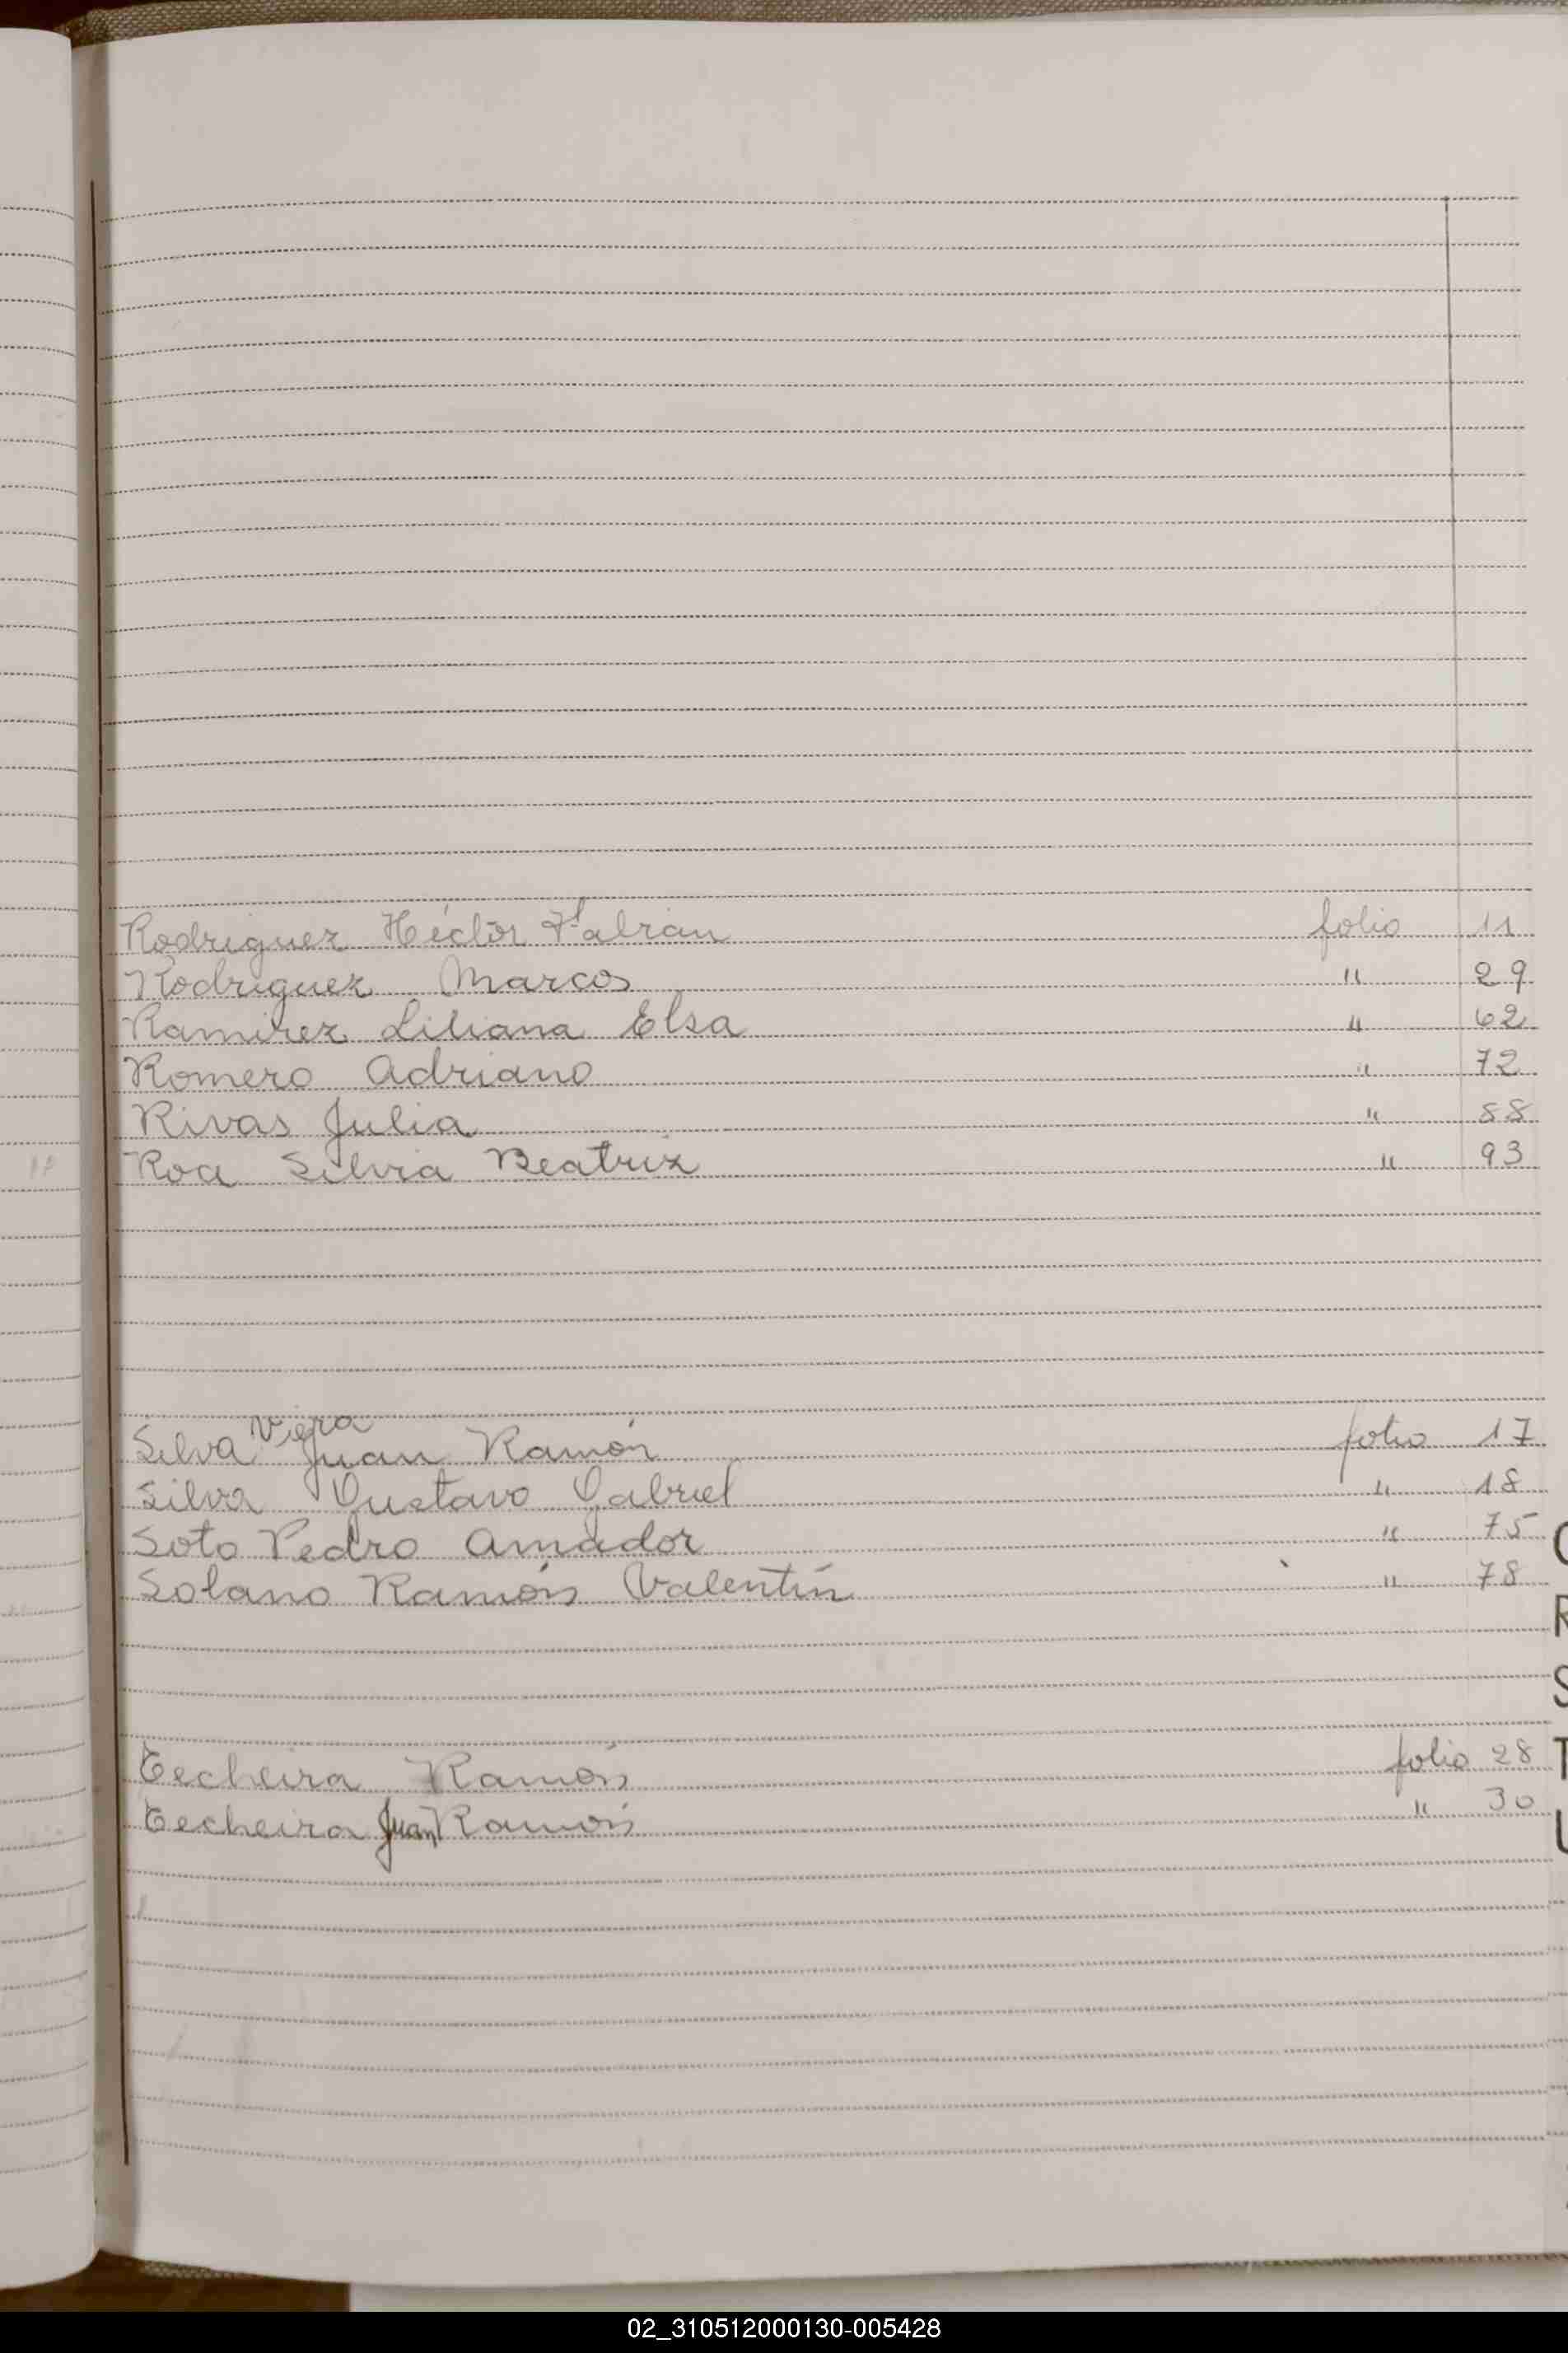 Rodriguez Héctor Fabián folio 11
Rodriguez Marcos " 29
Ramirez Liliana Elsa " 62
Romero Adriano " 72
Rivas Julia " 88
Roa Silvia Beatriz " 93
Silva Viera Juan Ramón folio 17
Silva Gustavo Gabriel " 18
Soto Pedro Amador " 75
Solano Ramón Valentín " 78
R
S
Techeira Ramón folio 28
T
Techeira Juan Ramón " 30
U
02_310512000130-005428